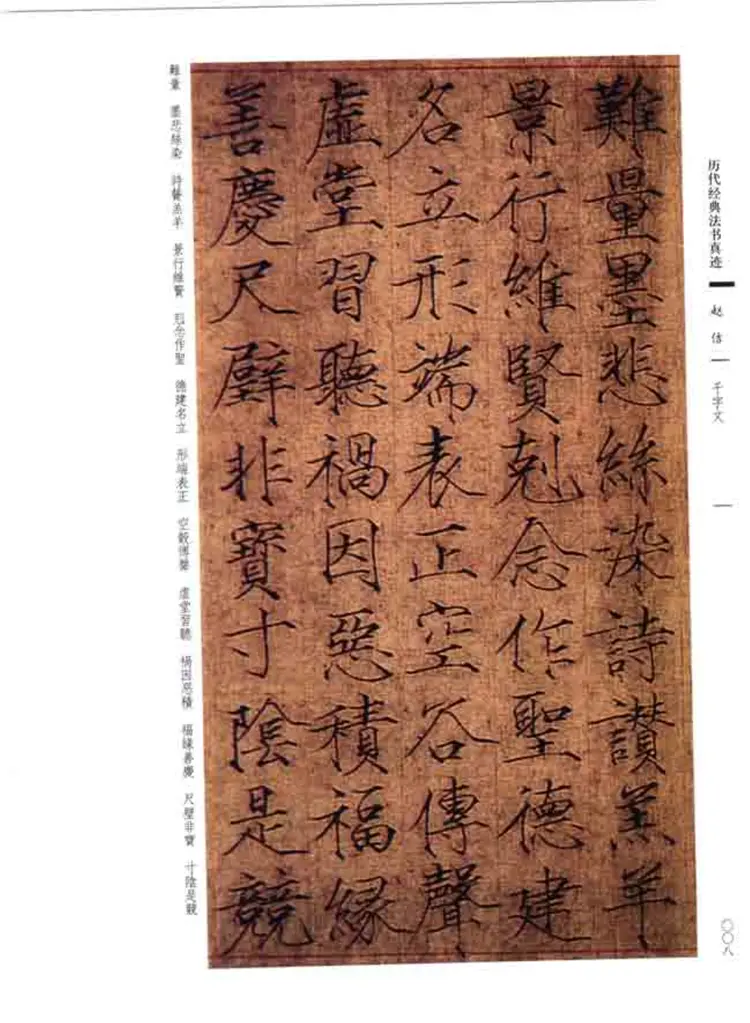 历代经典法书真迹
赵佶
千字文
〇〇八
難量墨悲絲染詩讃羔羊
景行維賢剋念作聖德建
名立形端表正空谷傳聲
虛堂習聽禍因惡積福緣
善慶尺璧非寶寸陰是競
難量 墨悲絲染 詩讚羔羊 景行維賢 剋念作聖 德建名立 形端表正 空穀傳聲 虛堂習聽 禍因惡積 福緣善慶 尺璧非寶 寸陰是競